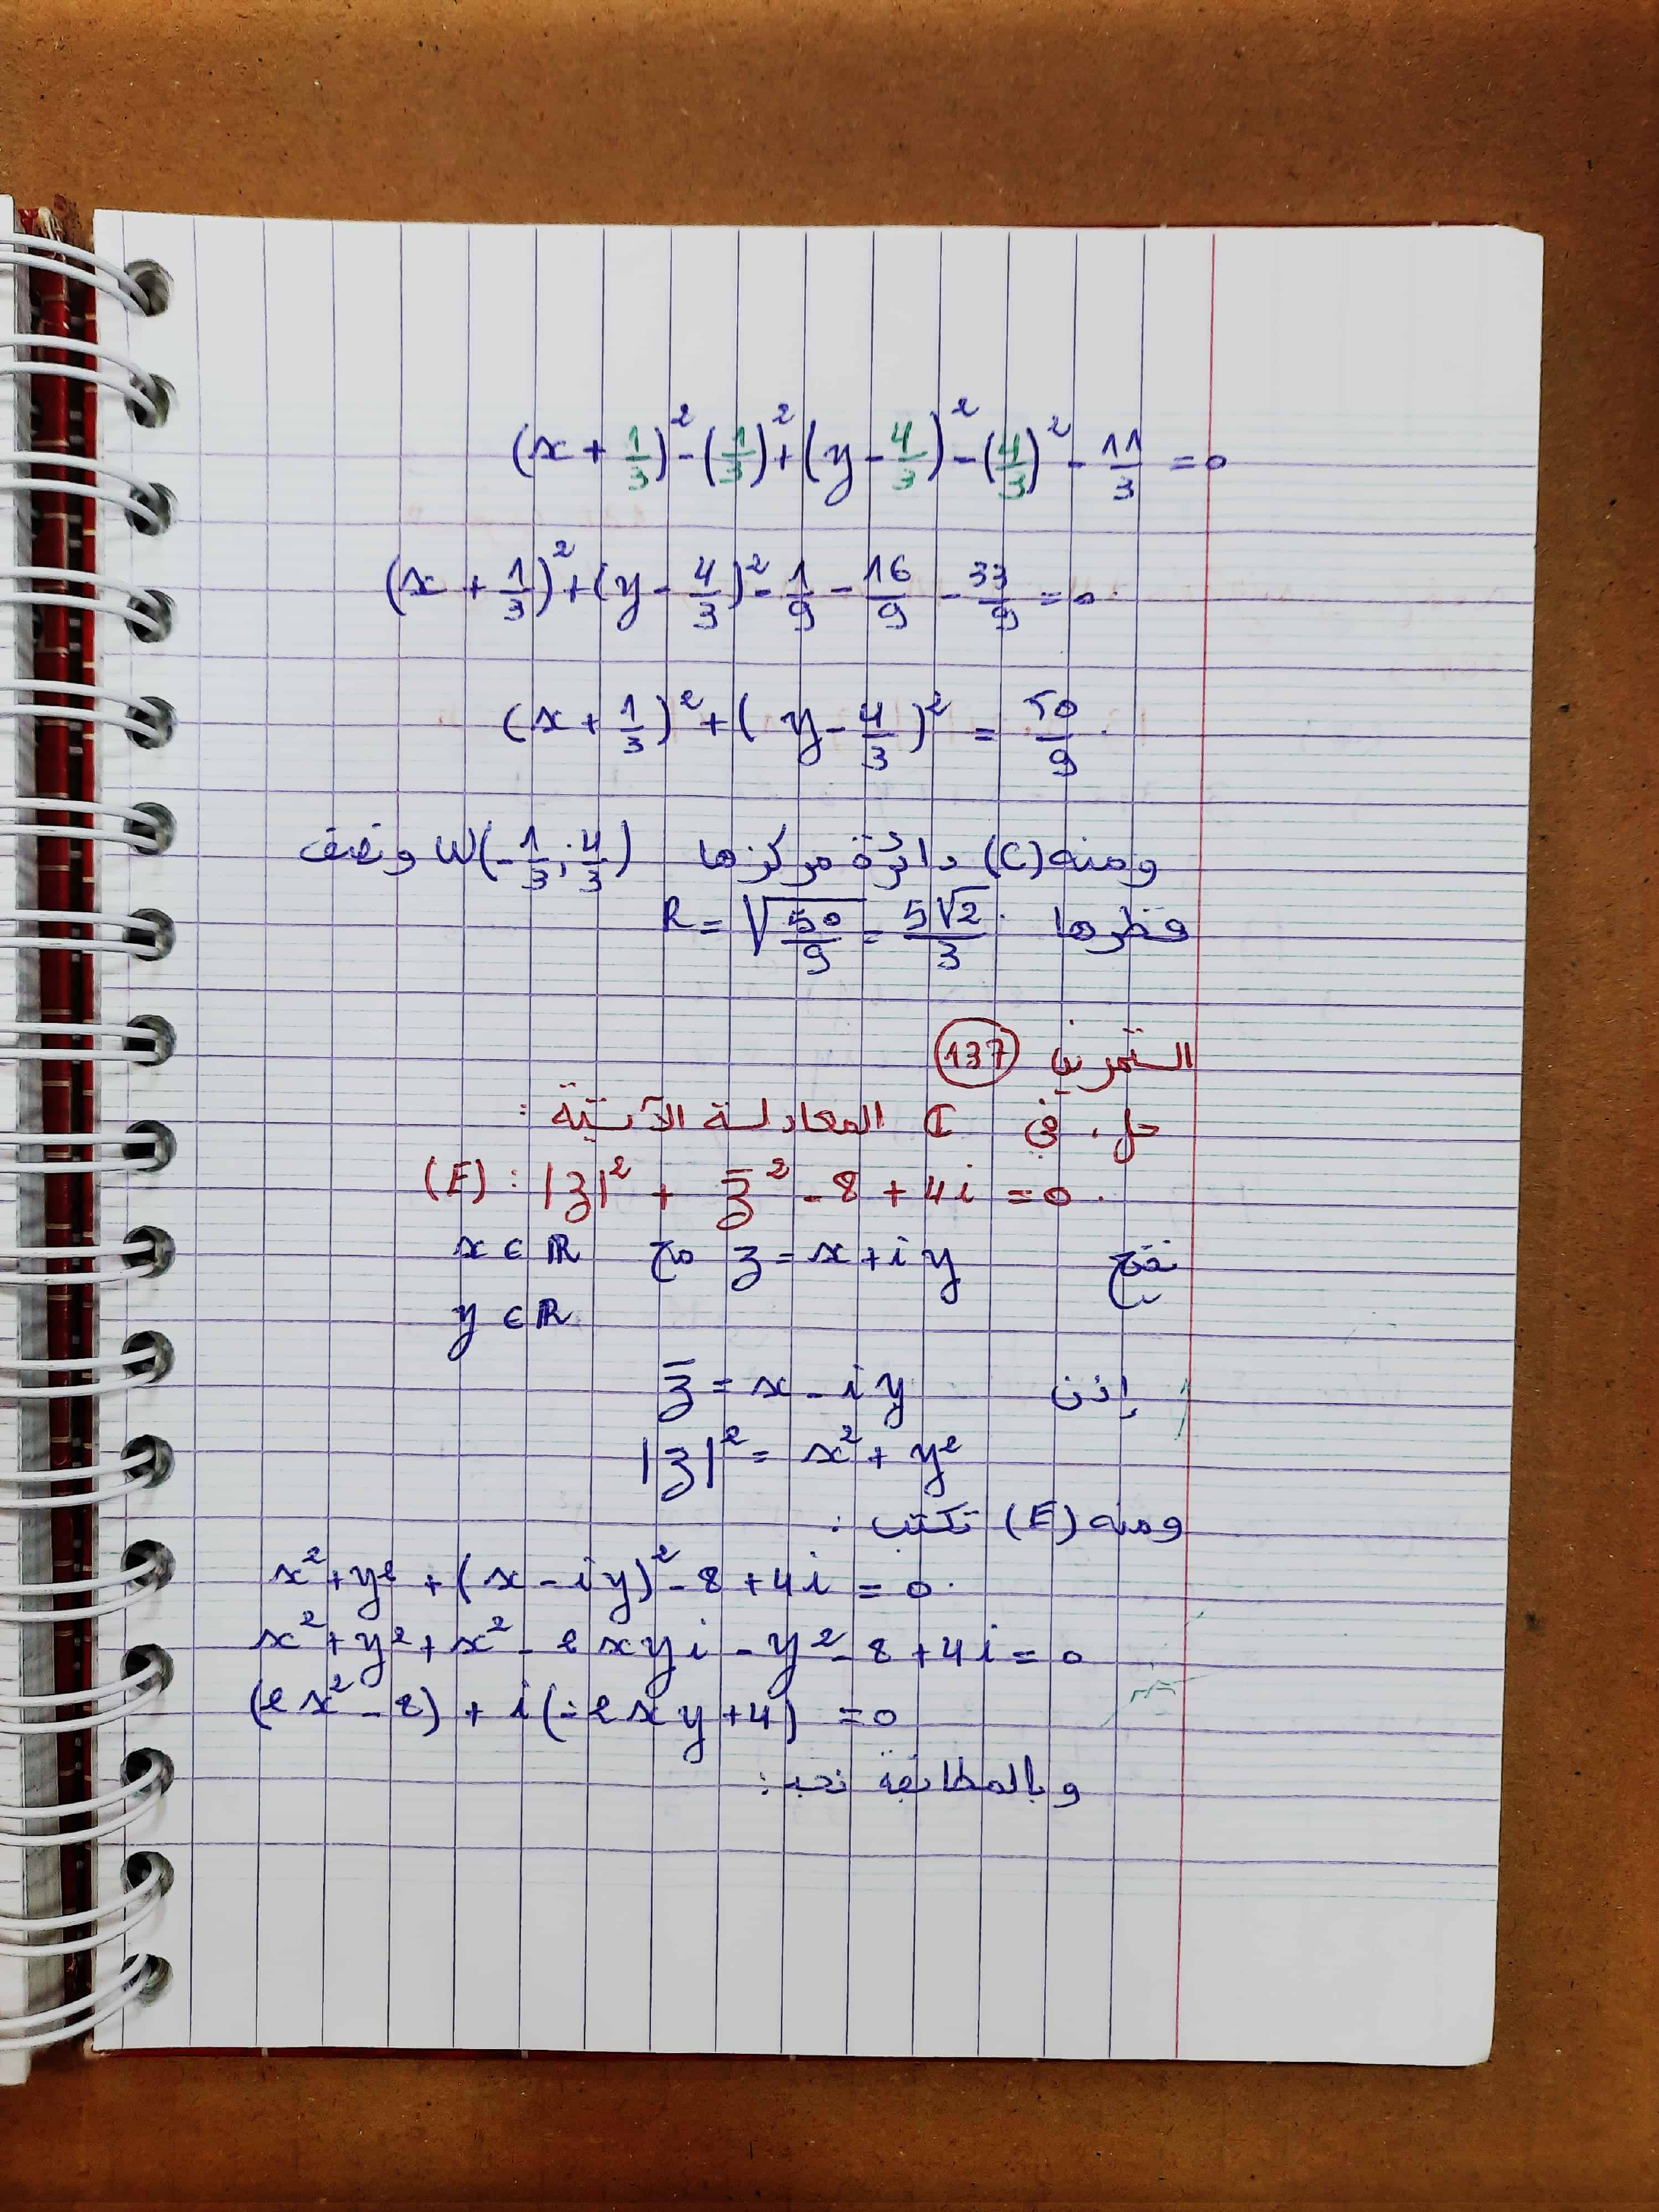 (x + 1/3)² - (1/3)² + (y - 4/3)² - (4/3)² - 11/3 = 0
(x + 1/3)² + (y - 4/3)² - 1/9 - 16/9 - 33/9 = 0.
(x + 1/3)² + (y - 4/3)² = 50/9.
ومنه (C) دائرة مركزها W(-1/3 ; 4/3) ونصف
قطرها R = √(50/9) = 5√2/3.
التمرين 137
حل، في ℂ المعادلة الآتية :
(E) : |z|² + z̄² - 8 + 4i = 0.
نضع z = x + iy مع x ∈ ℝ
y ∈ ℝ
إذن z̄ = x - iy
|z|² = x² + y²
ومنه (E) تكتب :
x² + y² + (x - iy)² - 8 + 4i = 0.
x² + y² + x² - 2xyi - y² - 8 + 4i = 0
(2x² - 8) + i(-2xy + 4) = 0
وبالمطابقة نجد :